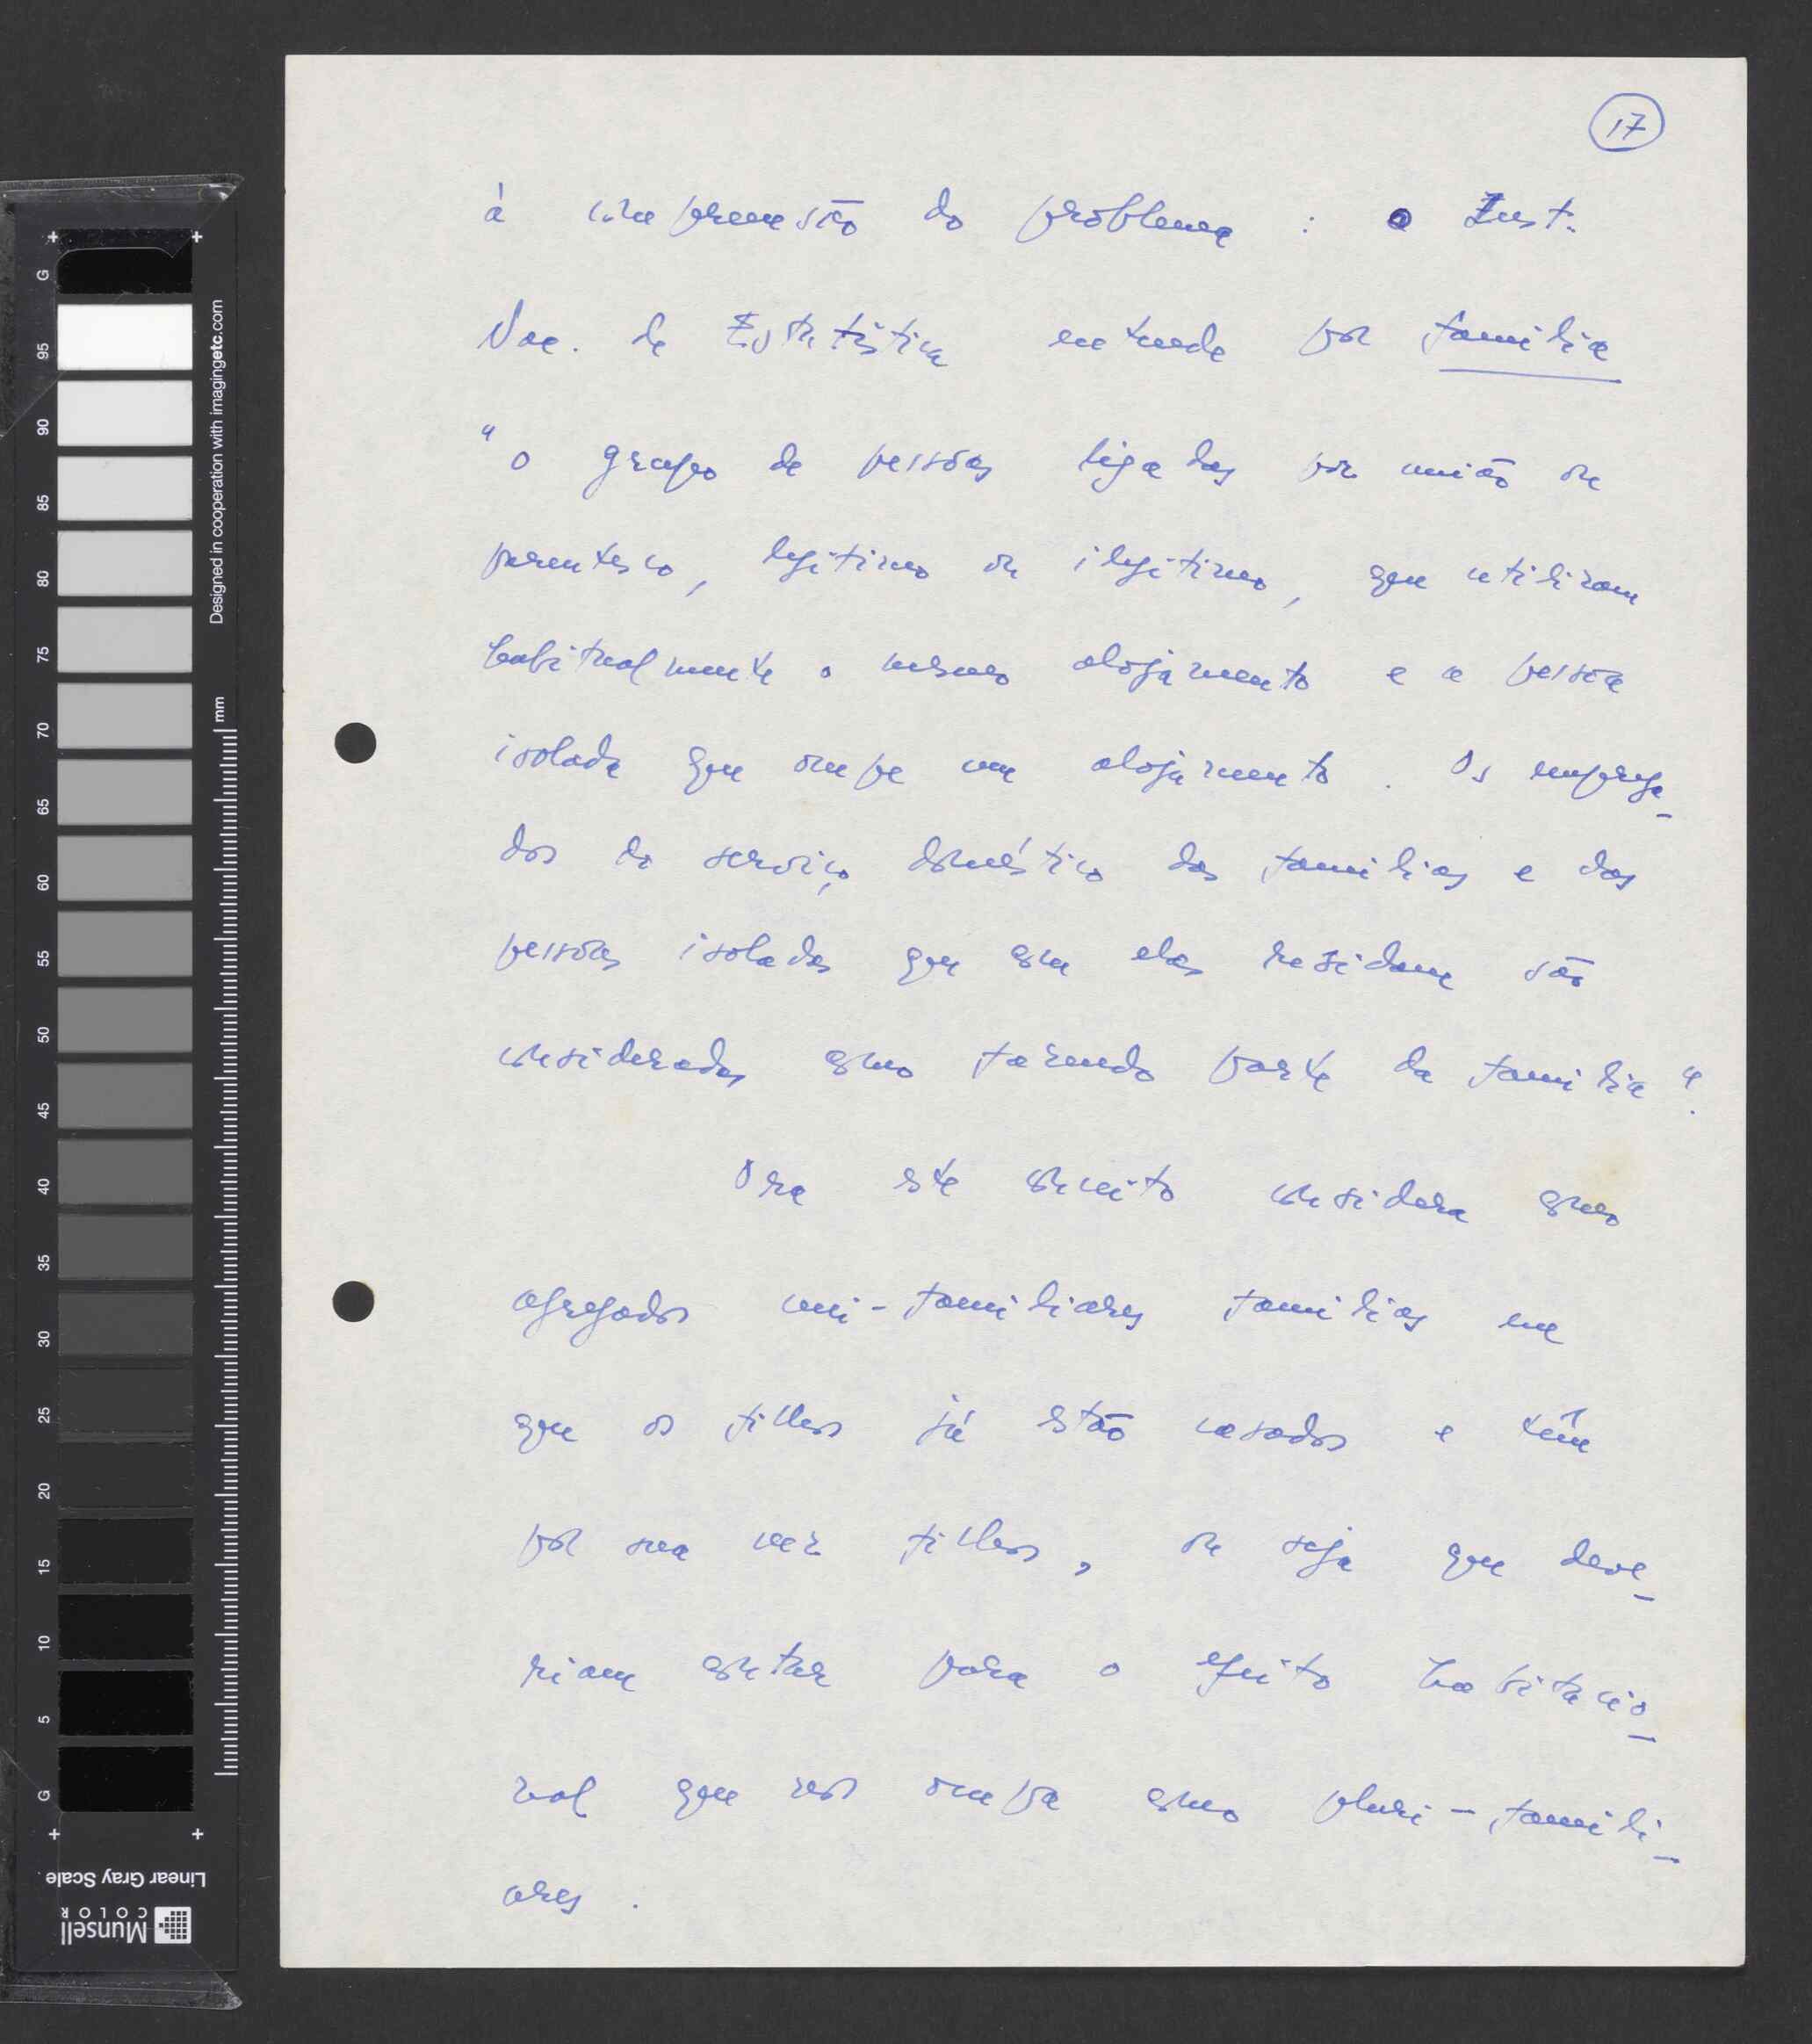 17
à compreensão do problema : o Inst.
Nac. de Estatística entende por familia
"o grupo de pessoas ligadas por união ou
parentesco, legitimo ou ilegitimo, que utilizam
habitualmente o mesmo alojamento e a pessoa
isolada que ocupe um alojamento. Os emprega-
dos do serviço doméstico das familias e das
pessoas isoladas que com elas residam são
considerados como fazendo parte da familia".
Ora este conceito considera como
agregados uni-familiares familias em
que os filhos já estão casados e têm
por sua vez filhos, ou seja que deve-
riam contar para o efeito habitacio-
nal que nos ocupa como pluri-famili-
ares.
G
95
90
85
80
75
70
65
60
55
50
45
40
35
30
25
20
15
10
5
G
Designed in cooperation with imagingetc.com
mm
Linear Gray Scale
Munsell
COLOR